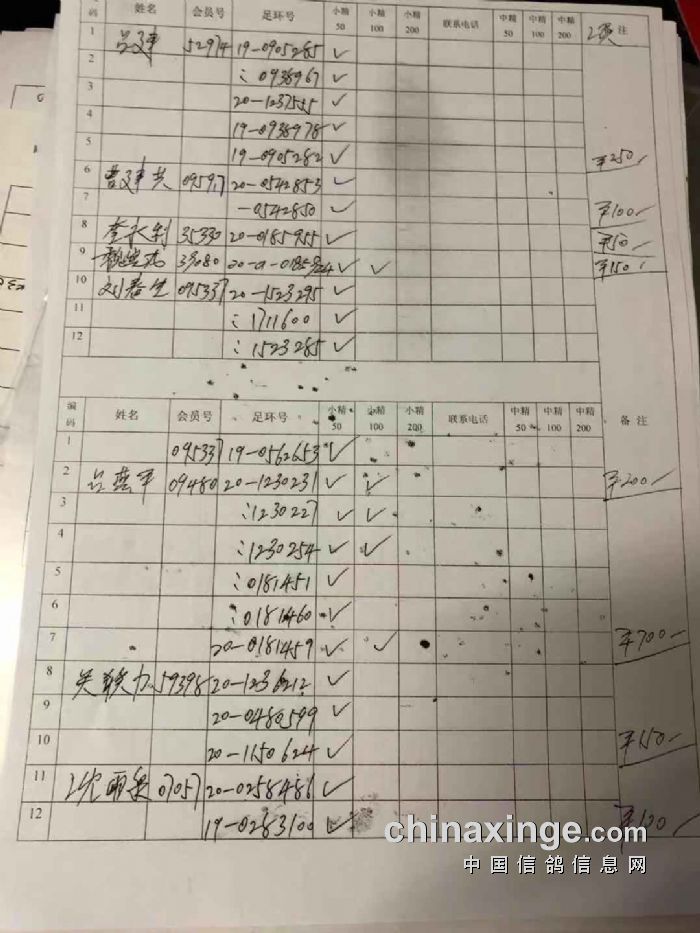 码 姓名 会员号 足环号 小精50 小精100 小精200 联系电话 中精50 中精100 中精200 注
1 52974 19-0905285 ✓
2 :0938967 ✓
3 20-1237555 ✓
4 19-0938978 ✓
5 19-0905282 ✓ ¥250
6 曹建共 09597 20-0542853 ✓
7 -0542850 ✓ ¥100
8 李长利 35330 20-0185955 ✓ ¥50
9 39080 ✓ ✓ ¥150
10 刘春生 095337 20-1523295 ✓
11 :1711600 ✓
12 :1523285 ✓
编码 姓名 会员号 足环号 小精50 小精100 小精200 联系电话 中精50 中精100 中精200 备注
1 095337 19-0562653 ✓
2 吕燕平 09480 20-1230231 ✓ ✓ ¥200
3 :1230227 ✓ ✓
4 :1230254 ✓ ✓
5 :0181451 ✓
6 :0181460 ✓
7 20-0181459 ✓ ✓ ¥700
8 59398 20-1236212 ✓
9 20-0486599 ✓
10 20-1150624 ✓ ¥150
11 07057 20-0258486 ✓
12 19-0283100 ✓ ¥100
chinaxinge.com
中国信鸽信息网